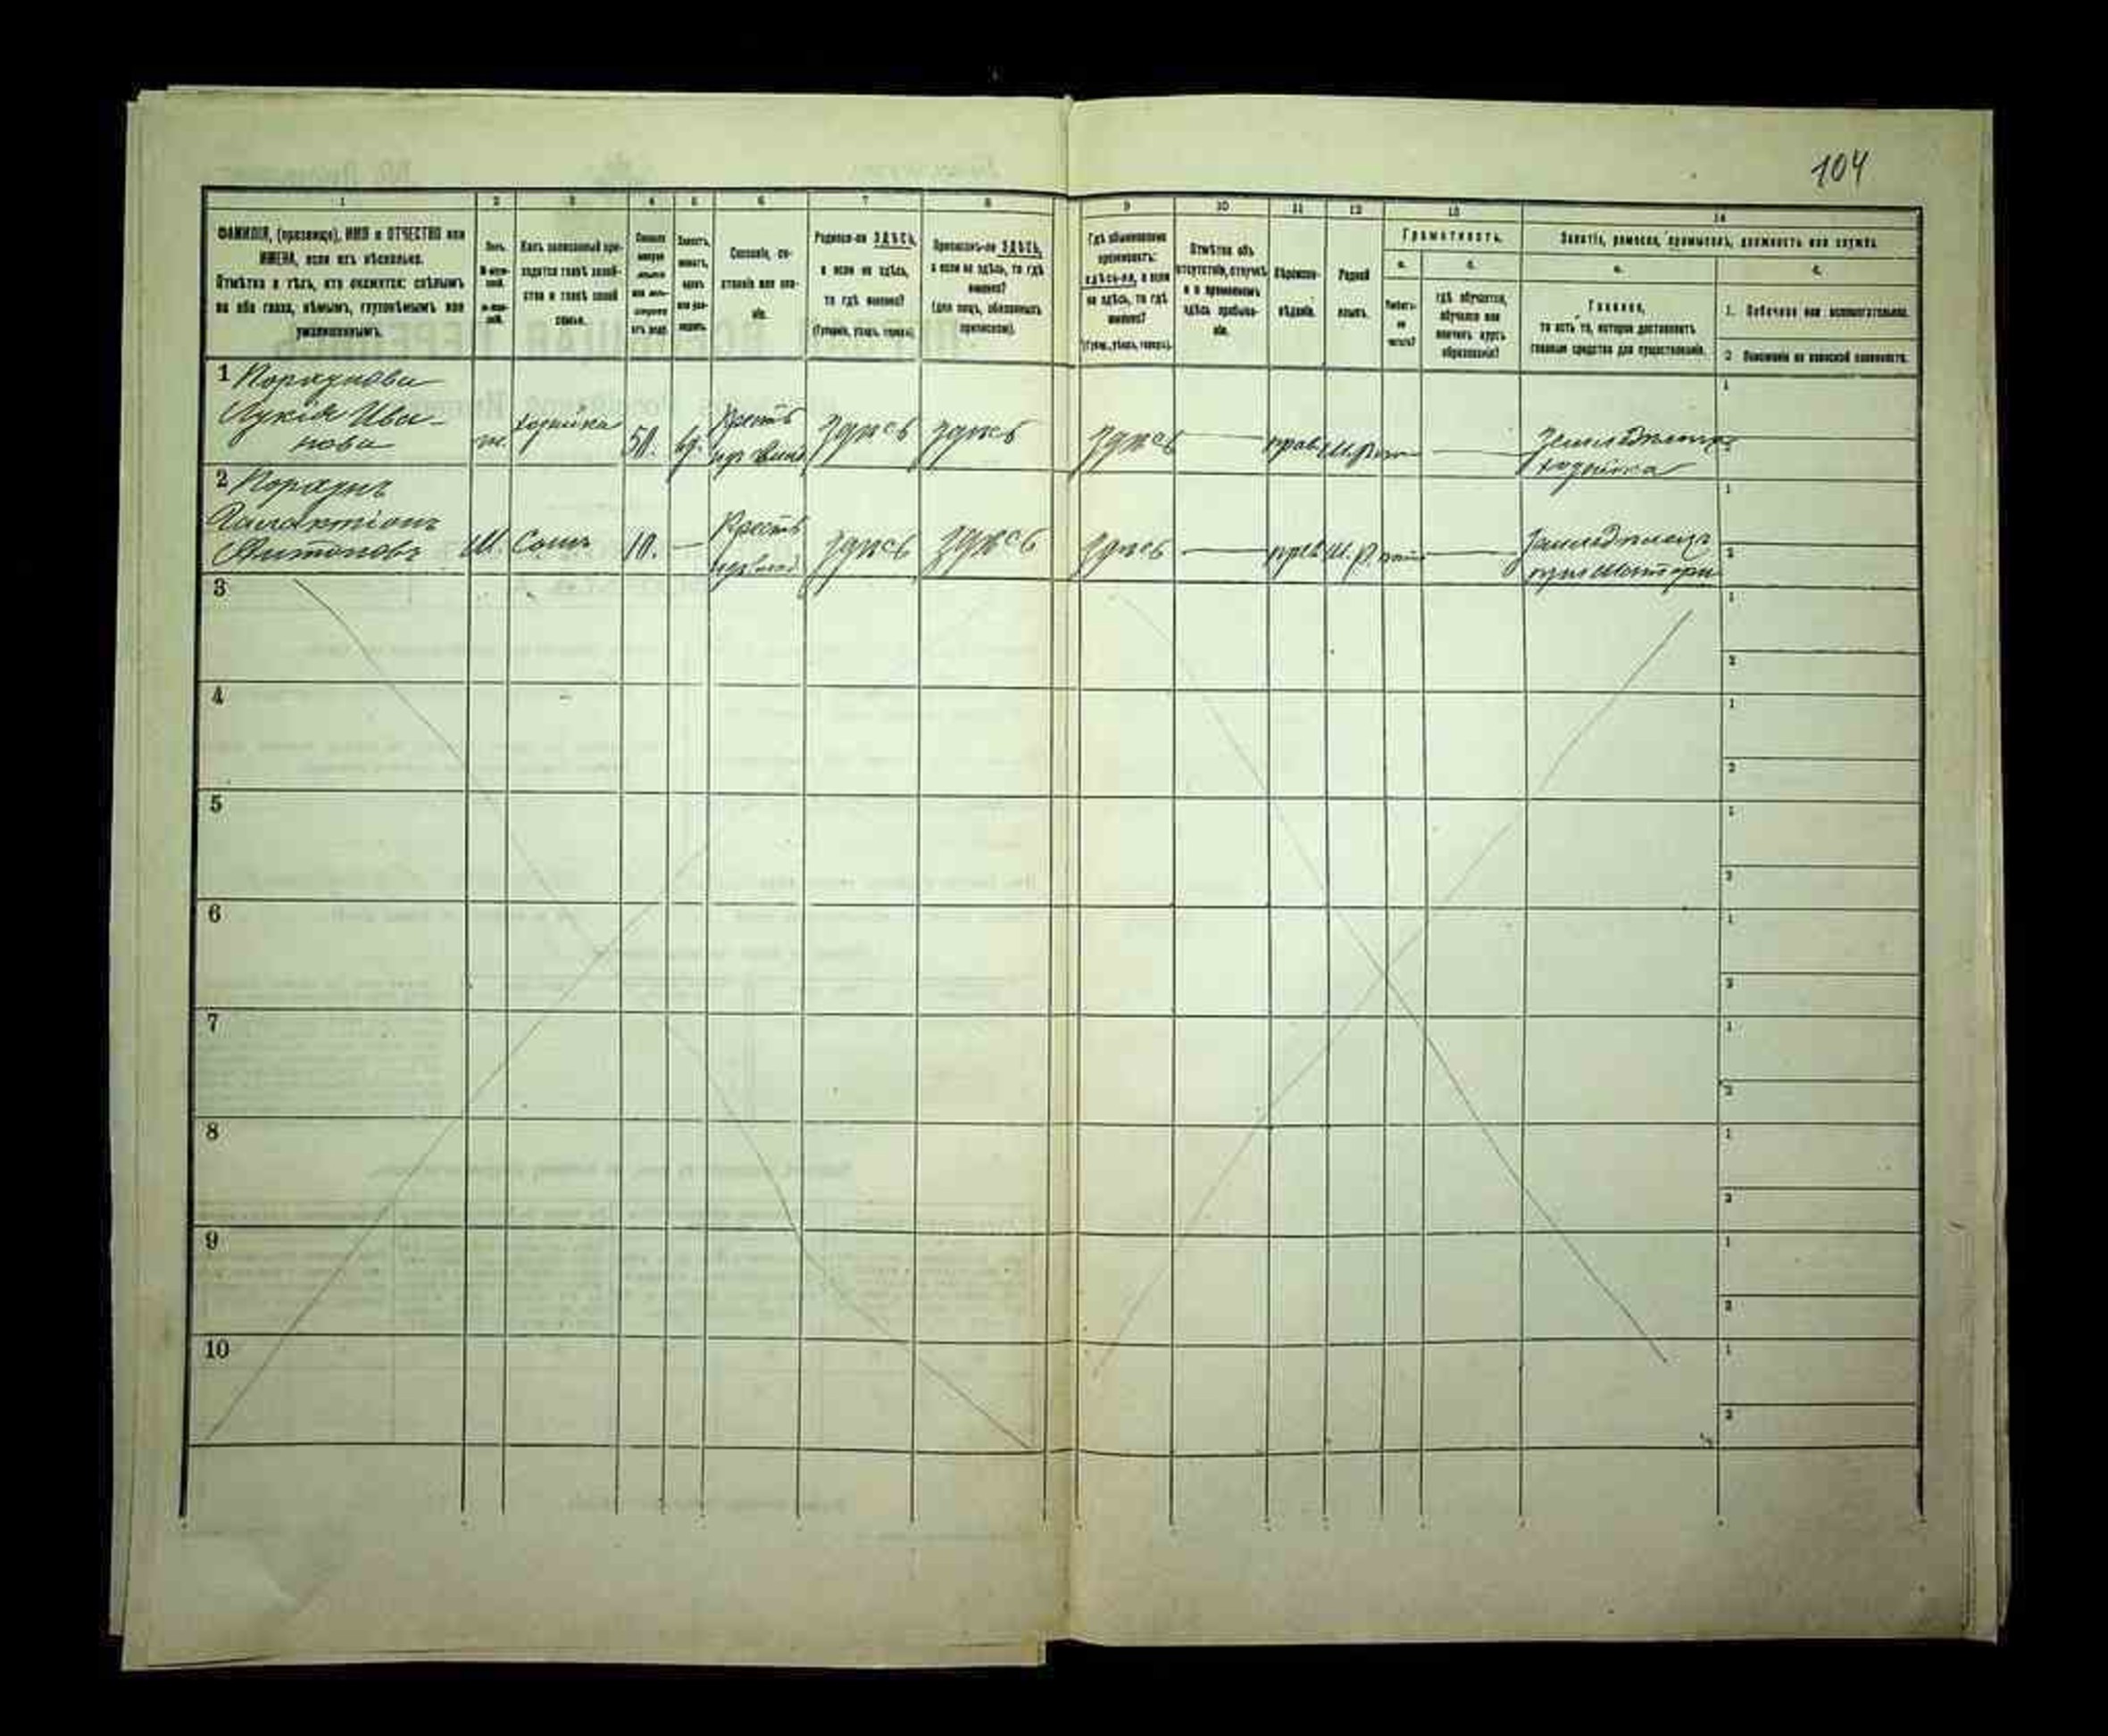 104
1
2
3
4
5
6
7
8
9
10
11
12
13
14
ФАМИЛІЯ, (прозвище), ИМЯ и ОТЧЕСТВО или
ИМЕНА, если ихъ нѣсколько.
Отмѣтка о тѣхъ, кто окажется: слѣпымъ
на оба глаза, нѣмымъ, глухонѣмымъ или
умалишеннымъ.
Полъ.
Какъ записанный при-
ходится главѣ хозяй-
ства и главѣ своей
семьи.
Сословіе, со-
стояніе или зва-
ніе.
Родился-ли ЗДѢСЬ,
а если не здѣсь,
то гдѣ именно?
(Губернія, уѣздъ, городъ).
Приписанъ-ли ЗДѢСЬ,
а если не здѣсь, то гдѣ
именно?
(для лицъ, обязанныхъ
припискою).
Гдѣ обыкновенно
проживаетъ:
здѣсь-ли, а если
не здѣсь, то гдѣ
именно?
(Губер., уѣздъ, городъ).
Отмѣтка объ
отсутствіи, отлучкѣ
и о временномъ
здѣсь пребыва-
ніи.
Вѣроиспо-
вѣданіе.
Родной
языкъ.
Грамотность.
а.
б.
Умѣетъ-
ли
читать?
гдѣ обучается,
обучался или
кончилъ курсъ
образованія?
Занятіе, ремесло, промыселъ, должность или служба.
а.
б.
Главное,
то есть то, которое доставляетъ
главныя средства для существованія.
1. Побочное или вспомогательное.
2. Положеніе по воинской повинности.
1
Лукія Ива-
нова
ж.
хозяйка
50.
вд.
Крестъ
здѣсь
здѣсь
здѣсь
—
прав.
М.Р.
—
хозяйка
2
Галактіонъ
Антоновъ
М.
Сынъ
10.
—
Крестъ
здѣсь
здѣсь
здѣсь
—
прав
М.Р.
—
при Матери
3
4
5
6
7
8
9
10